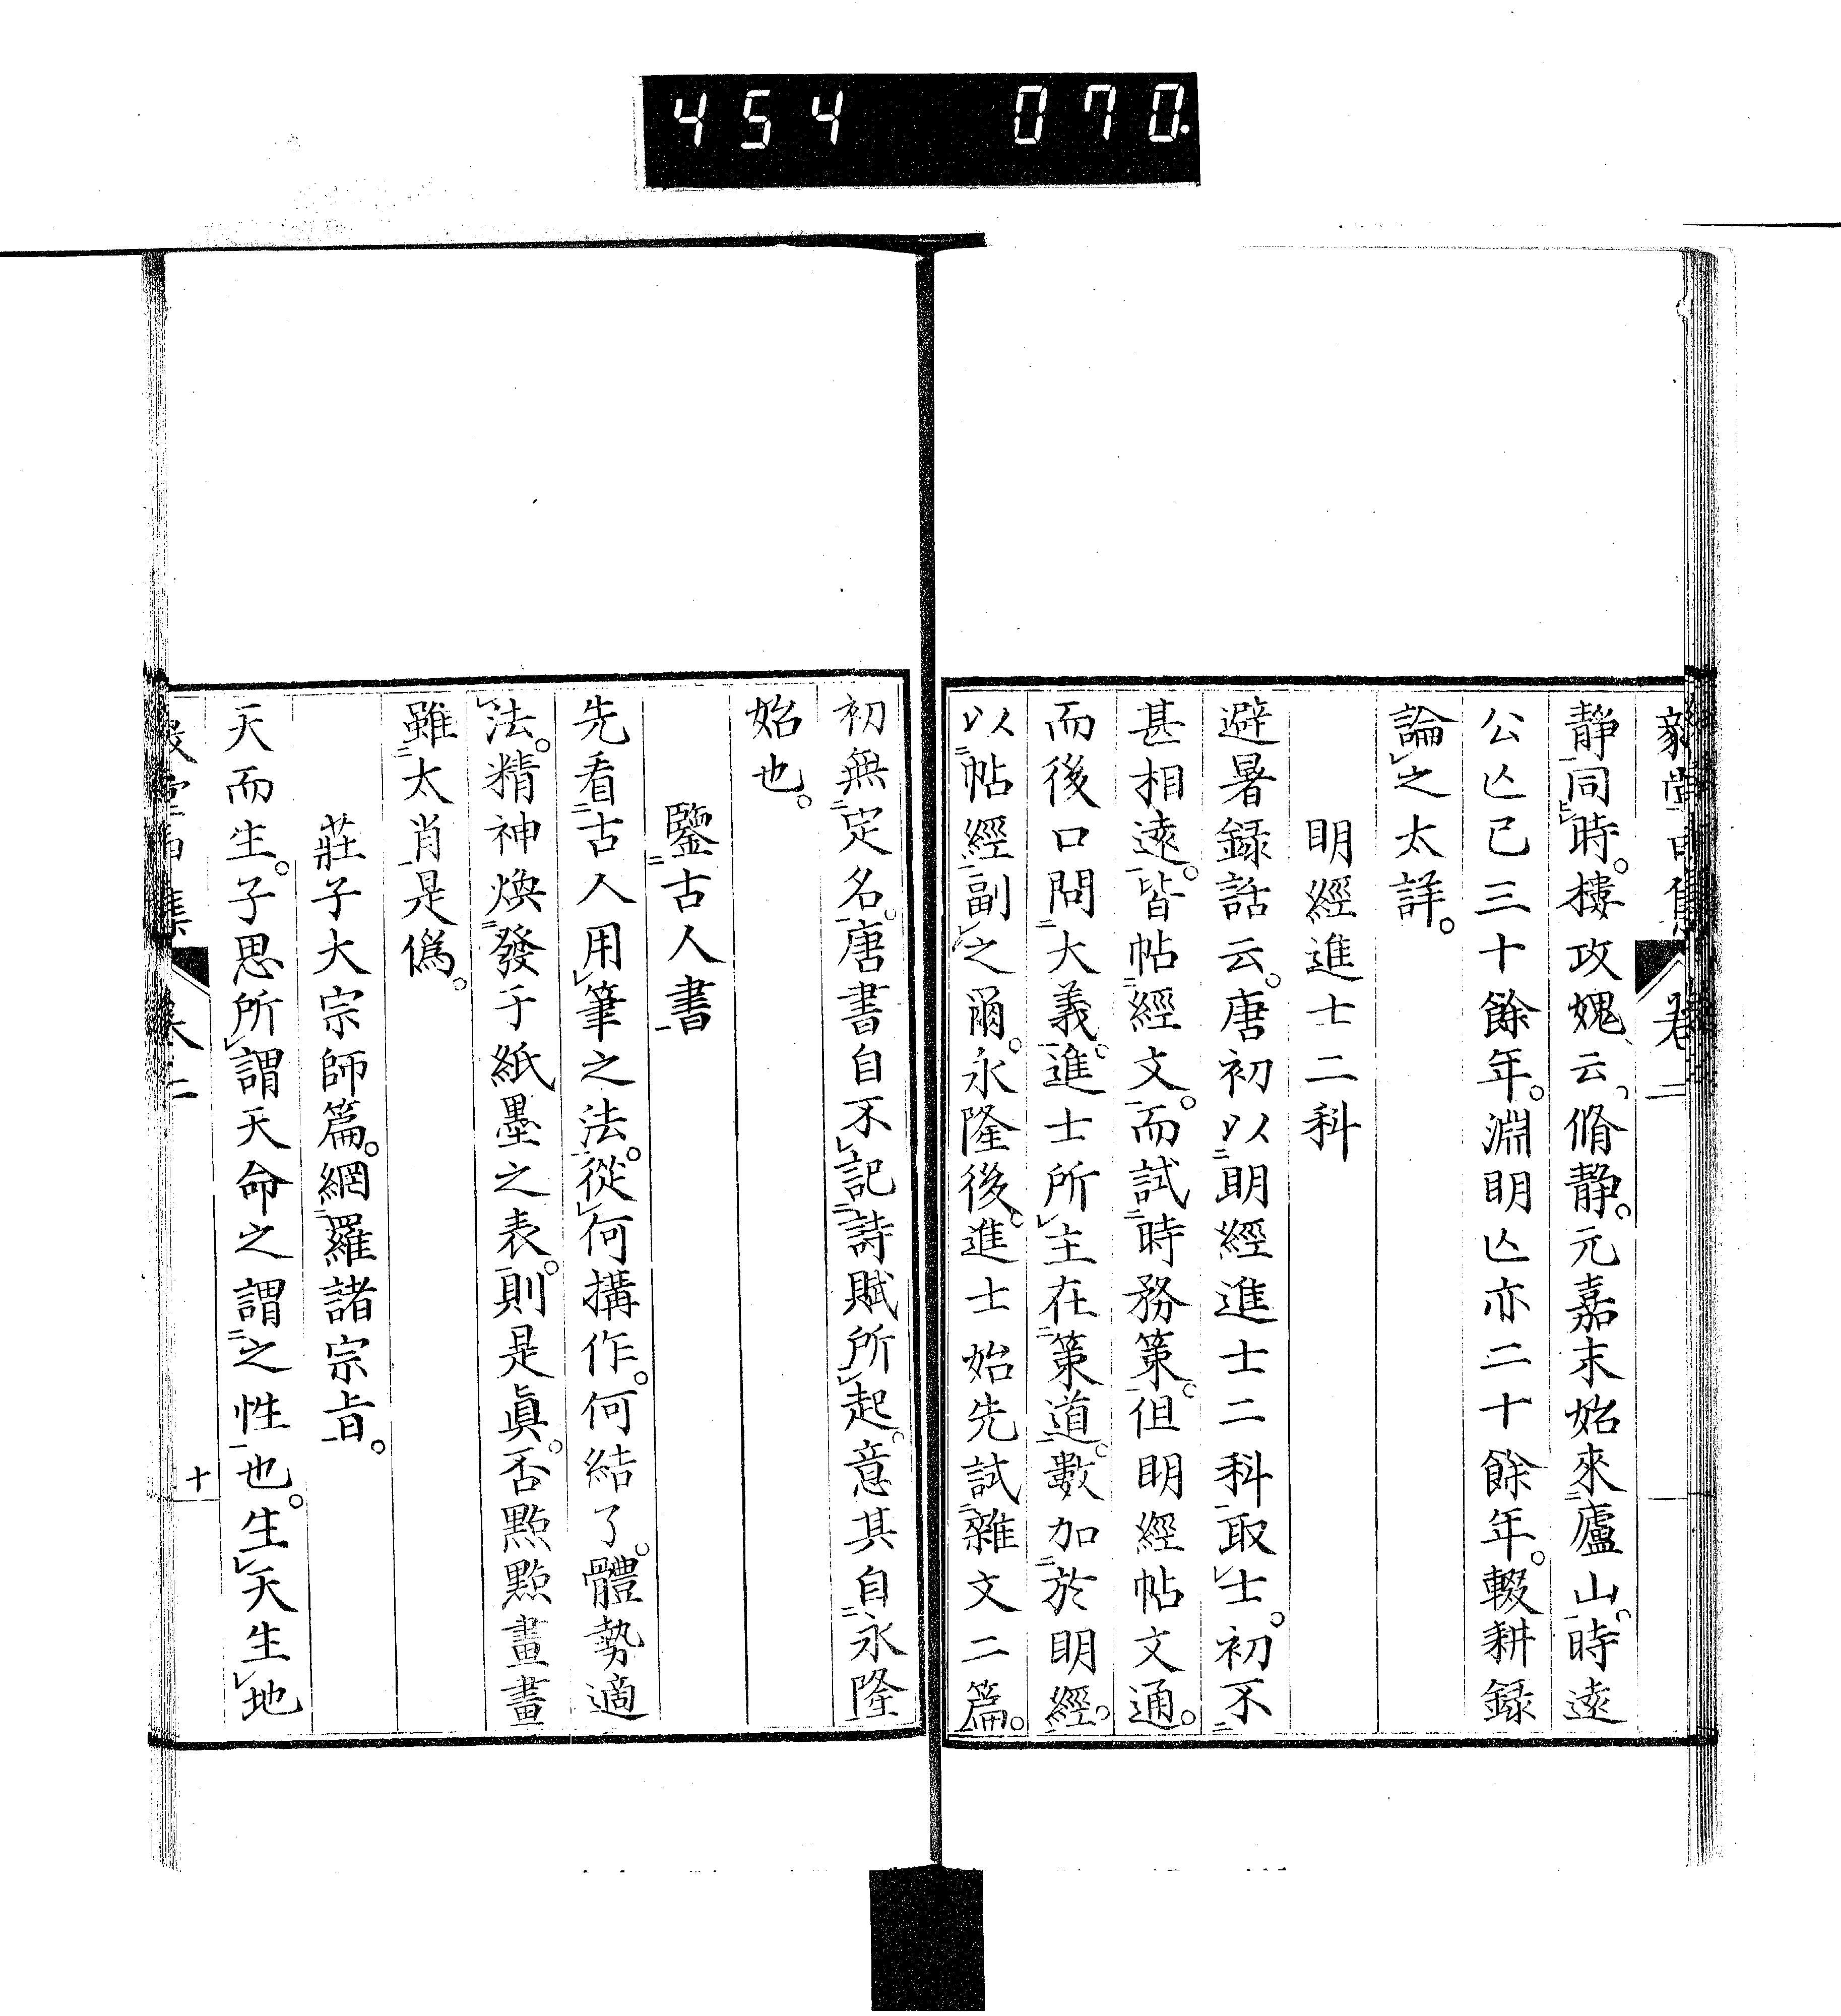 454 070.
靜同時。樓攻媿云、脩靜。元嘉末始來廬山。時遠
公亾已三十餘年。淵明亾亦二十餘年。輟耕録
論之太詳。
明經進士二科
避暑録話云。唐初以明經進士二科取士。初不
甚相遠。皆帖經文。而試時務策。但明經帖文通。
而後口問大義。進士所主在策道。數加於明經。
以帖經副之爾。永隆後。進士始先試雜文二篇。
初無定名。唐書自不記詩賦所起。意其自永隆
始也。
鑒古人書
先看古人用筆之法。從何搆作。何結了。體勢適
法。精神煥發于紙墨之表。則是眞。否點點畫畫
雖太肖是僞。
莊子大宗師篇。網羅諸宗㫖。
天而生。子思所謂天命之謂之性也。生天生地
十